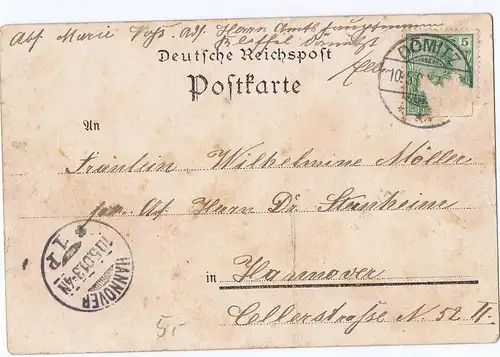 Abs Marie Voss. Adr. Herrn Amtshauptmann
Deutsche Reichspost
Postkarte
5
DÖMITZ
An
Fräulein Wilhelmine Möller
Adr. Herrn Dr. Stanheim
in Hannover
Cellerstraße N. 52 II.
HANNOVER
1. P
5,-